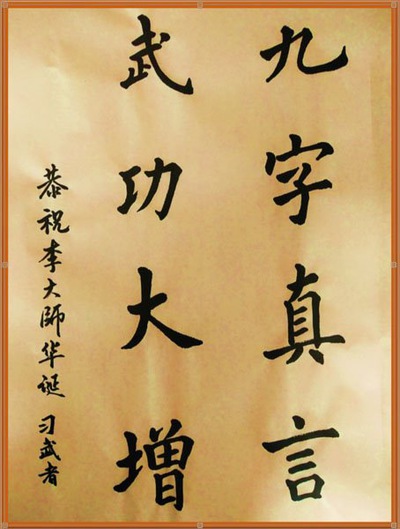 九字真言
武功大增
恭祝李大師华诞 习武者